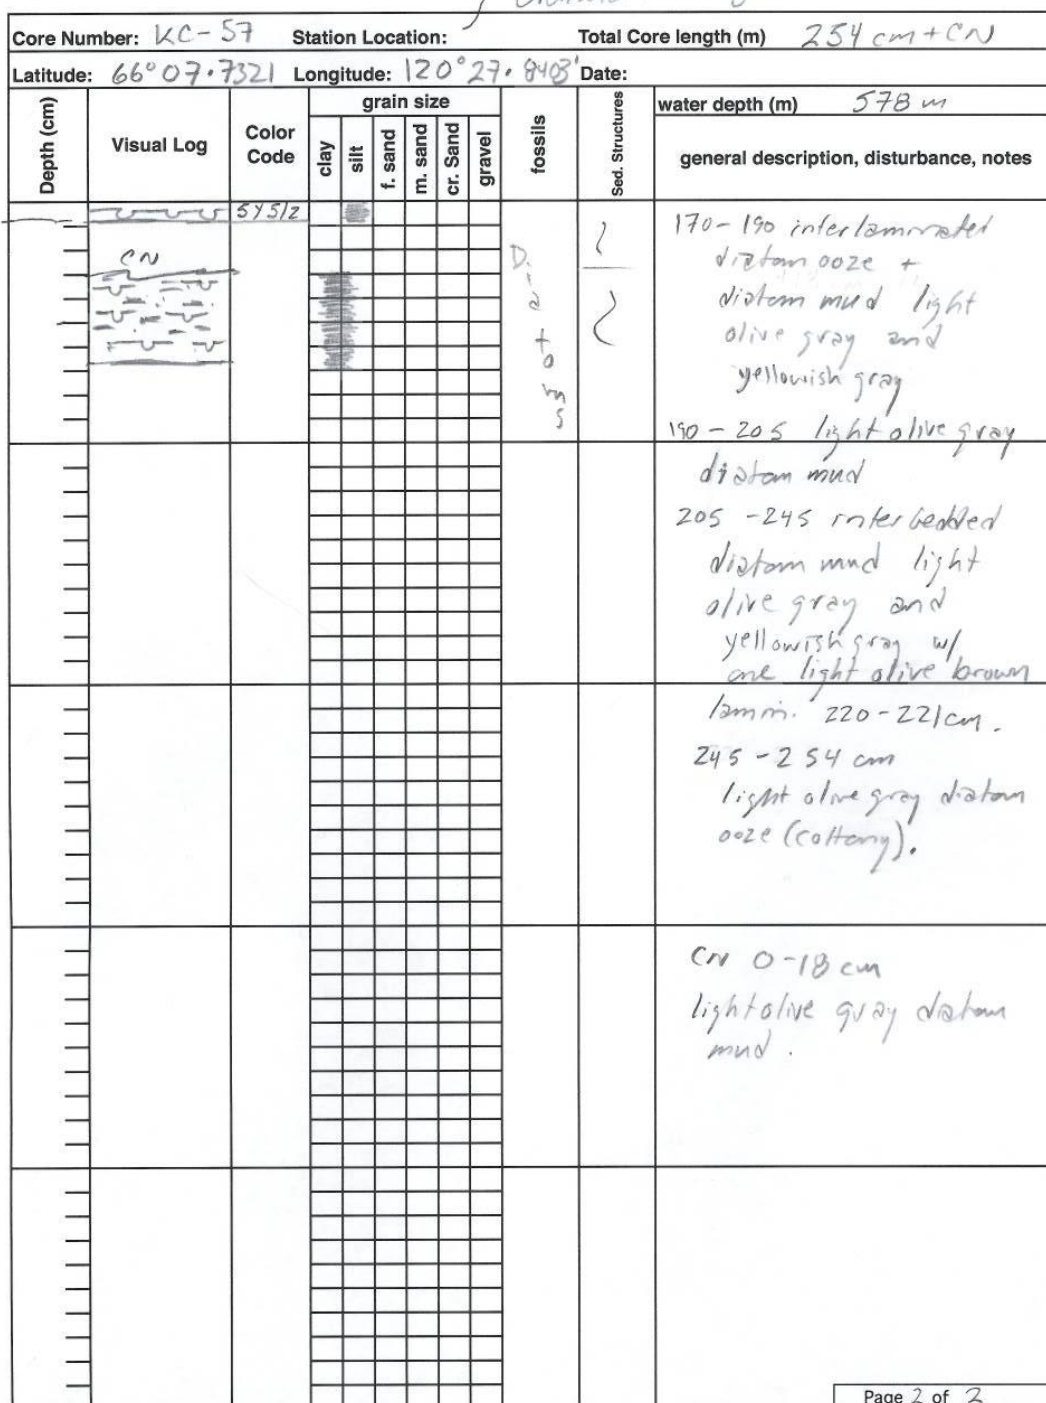 Core Number: KC-57 Station Location: Total Core length (m) 254 cm + CN
Latitude: 66°07.7321 Longitude: 120°27.8403' Date:
Depth (cm) Visual Log Color Code grain size clay silt f. sand m. sand cr. Sand gravel fossils Sed. Structures water depth (m) 578 m
general description, disturbance, notes
5Y5/2
CN
Diatoms
170-190 interlaminated
diatom ooze +
diatom mud light
olive gray and
yellowish gray
190-205 light olive gray
diatom mud
205-245 interbedded
diatom mud light
olive gray and
yellowish gray w/
one light olive brown
lamin. 220-221cm.
245-254 cm
light olive gray diatom
ooze (cottony).
CN 0-18 cm
light olive gray diatom
mud.
Page 2 of 2